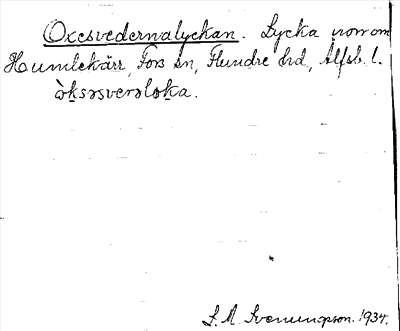 Oxesvedernalyckan. Lycka norrom
Humlekärr, Fors sn, Flundre hd, Älfsb. l.
òk̲səsverəlok̲a.
S. A. Svenungson. 1934.